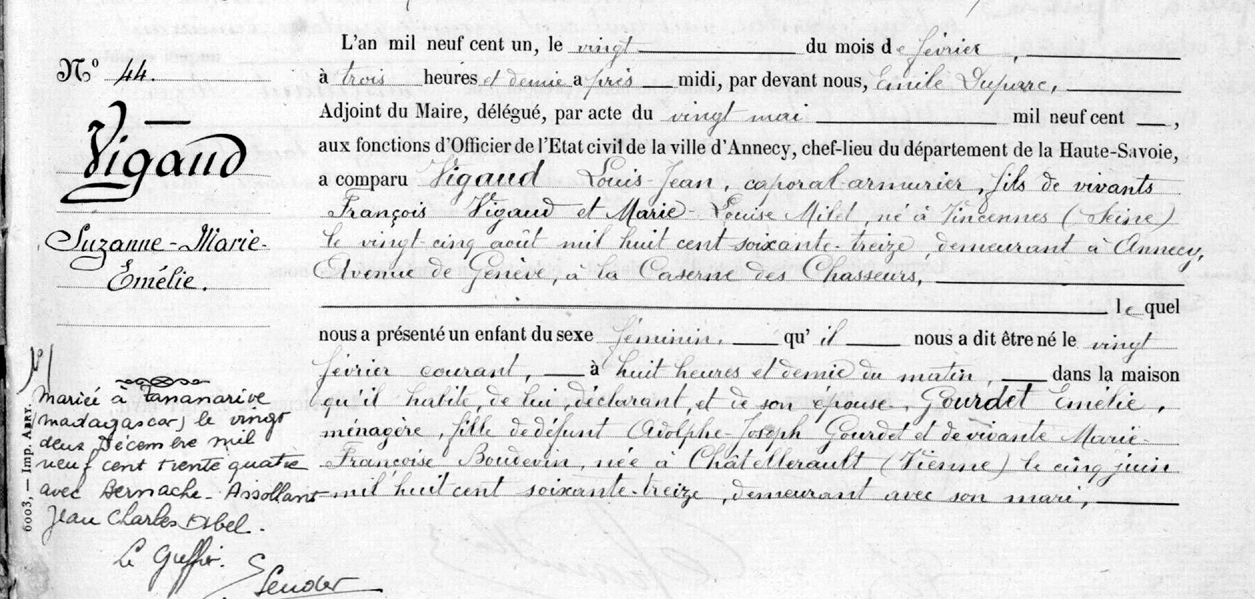 L'an mil neuf cent un, le vingt du mois de février,
N° 44.
à trois heures et demie après midi, par devant nous, Emile Duparc,
Adjoint du Maire, délégué, par acte du vingt mai mil neuf cent,
Vigaud
aux fonctions d'Officier de l'Etat civil de la ville d'Annecy, chef-lieu du département de la Haute-Savoie,
a comparu Vigaud Louis-Jean, caporal-armurier, fils de vivants
François Vigaud et Marie-Louise Milet, né à Vincennes (Seine)
Suzanne-Marie-
Emélie.
le vingt-cinq août mil huit cent soixante-treize, demeurant à Annecy,
Avenue de Genève, à la Caserne des Chasseurs,
lequel
nous a présenté un enfant du sexe féminin, qu'il nous a dit être né le vingt
février courant, à huit heures et demie du matin, dans la maison
qu'il habite, de lui déclarant, et de son épouse, Gourdet Emélie,
ménagère, fille de défunt Adolphe-Joseph Gourdet et de vivante Marie-
Françoise Boudevin, née à Châtellerault (Vienne) le cinq juin
mil huit cent soixante-treize, demeurant avec son mari,
Mariée à Tananarive
(madagascar) le vingt
deux Décembre mil
neuf cent trente quatre
avec Bernache-Assollant
Jean Charles Abel.
Le Greffier.
6003, — Imp. ABRY.